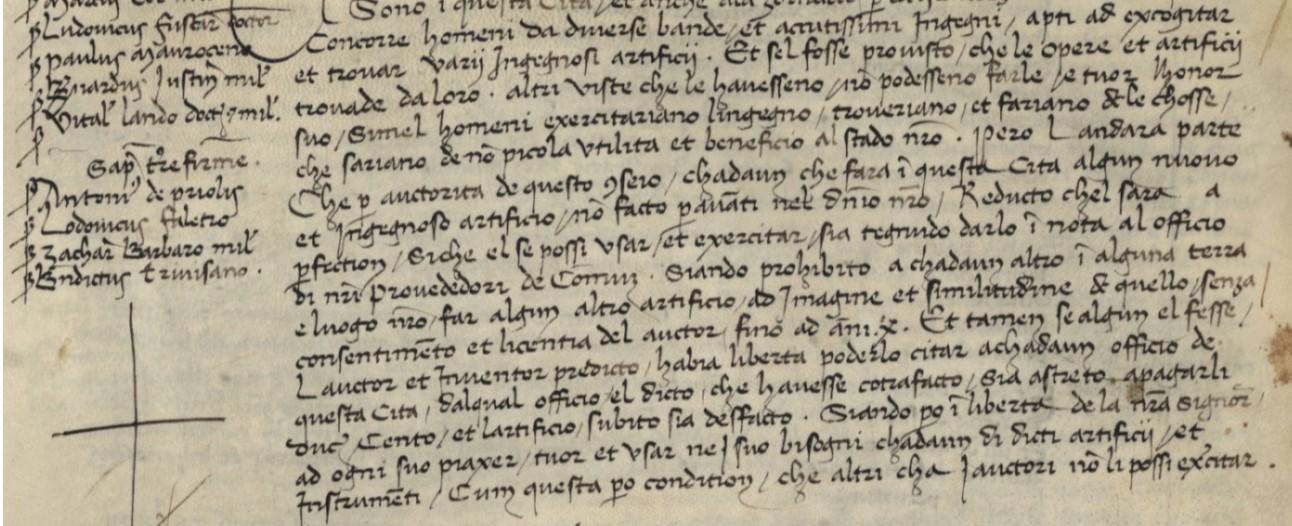 Ludovicus fuscar doctor
paulus Mauroceno
Bnardus Justin mil
Vital lando doct mil.
Sap t͞re firme.
Antoni de priolis
Lodovicus faletro
Zachar Barbaro mil
Bndictus trivisano.
Sono ĩ questa Cita / et anche
Concorre homeni da diverse bande / et acutissimi Ingegni / apti ad excogitar
et trovar varij Ingegnosi artificij. Et sel fosse provisto / che le opere et artificij
trovade da loro. altri viste che le havesseno / nõ podesseno farle / e tuor lhonor
suo / Simel homeni exercitariano lingegno / troveriano / et fariano de le chosse /
che sariano de nõ picola utilita et beneficio al stado nr̃o. Pero L andara parte
Che p auctorita de questo ꝯseio / chadaun che fara ĩ questa Cita algun nuovo
et Ingegnoso artificio / nõ facto p avãti nel dñio nr̃o / Reducto chel sara a
pfection / Siche el se possi usar / et exercitar / sia tegnudo darlo ĩ nota al officio
di nr̃i Provededori de Comũ. Siando prohibito a chadaun altro ĩ alguna terra
e luogo nr̃o / far algun altro artificio / ad Imagine et similitudine de quello / senza
consentimẽto et licentia del auctor / fino ad ãni .x. Et tamen se algun el fesse /
L auctor et Inventor predicto / habia liberta poderlo citar a chadaun officio de
questa Cita / dal qual officio / el dicto / che havesse cõtrafacto / Sia astreto a pagarli
duc Cento / et lartificio / subito sia desfacto. Siando po ĩ liberta de la nr̃a Signor
ad ogni suo piaxer / tuor et usar ne I suo bisogni chadaun di dicti artificij / et
Instrumẽti / Cum questa po condition / che altri cha I auctori nõ li possi excitar.